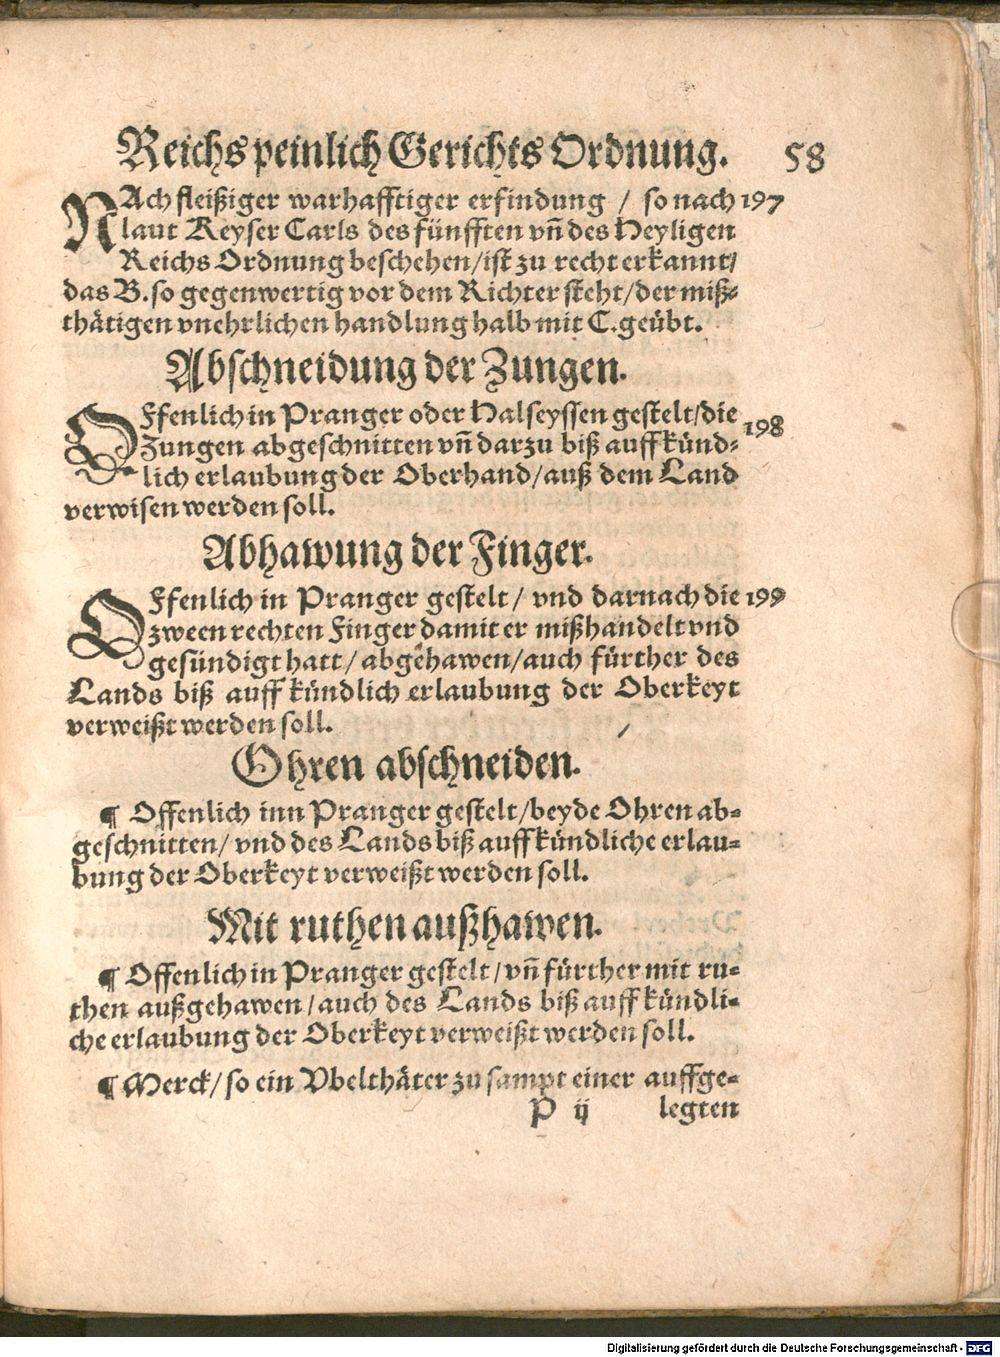 Reichs peinlich Gerichts Ordnung. 58
NAch fleißiger warhafftiger erfindung / so nach 197
laut Keyser Carls des fünfften vñ des Heyligen
Reichs Ordnung beschehen/ist zu recht erkannt/
das B. so gegenwertig vor dem Richter steht/der miß-
thätigen vnehrlichen handlung halb mit C. geübt.
Abschneidung der Zungen.
OFfenlich in Pranger oder Halseyssen gestelt/die
Zungen abgeschnitten vñ darzu biß auff künd- 198
lich erlaubung der Oberhand/auß dem Land
verwisen werden soll.
Abhawung der Finger.
OFfenlich in Pranger gestelt/ vnd darnach die 199
zween rechten Finger damit er mißhandelt vnd
gesündigt hatt/ abgehawen/auch fürther des
Lands biß auff kündlich erlaubung der Oberkeyt
verweißt werden soll.
Ohren abschneiden.
¶ Offenlich inn Pranger gestelt/beyde Ohren ab-
geschnitten/ vnd des Lands biß auff kündliche erlau-
bung der Oberkeyt verweißt werden soll.
Mit ruthen außhawen.
¶ Offenlich in Pranger gestelt/vñ fürther mit ru-
then außgehawen/auch des Lands biß auff kündli-
che erlaubung der Oberkeyt verweißt werden soll.
¶ Merck/ so ein Vbelthäter zu sampt einer auffge-
P ij legten
Digitalisierung gefördert durch die Deutsche Forschungsgemeinschaft - DFG